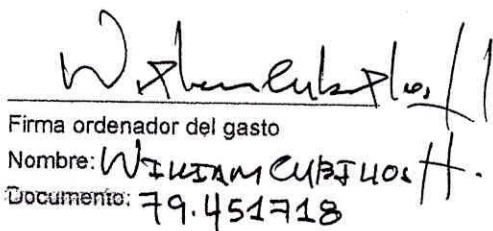 Firma ordenador del gasto
Nombre: WILLIAM CUBILLOS H.
Documento: 79.451718